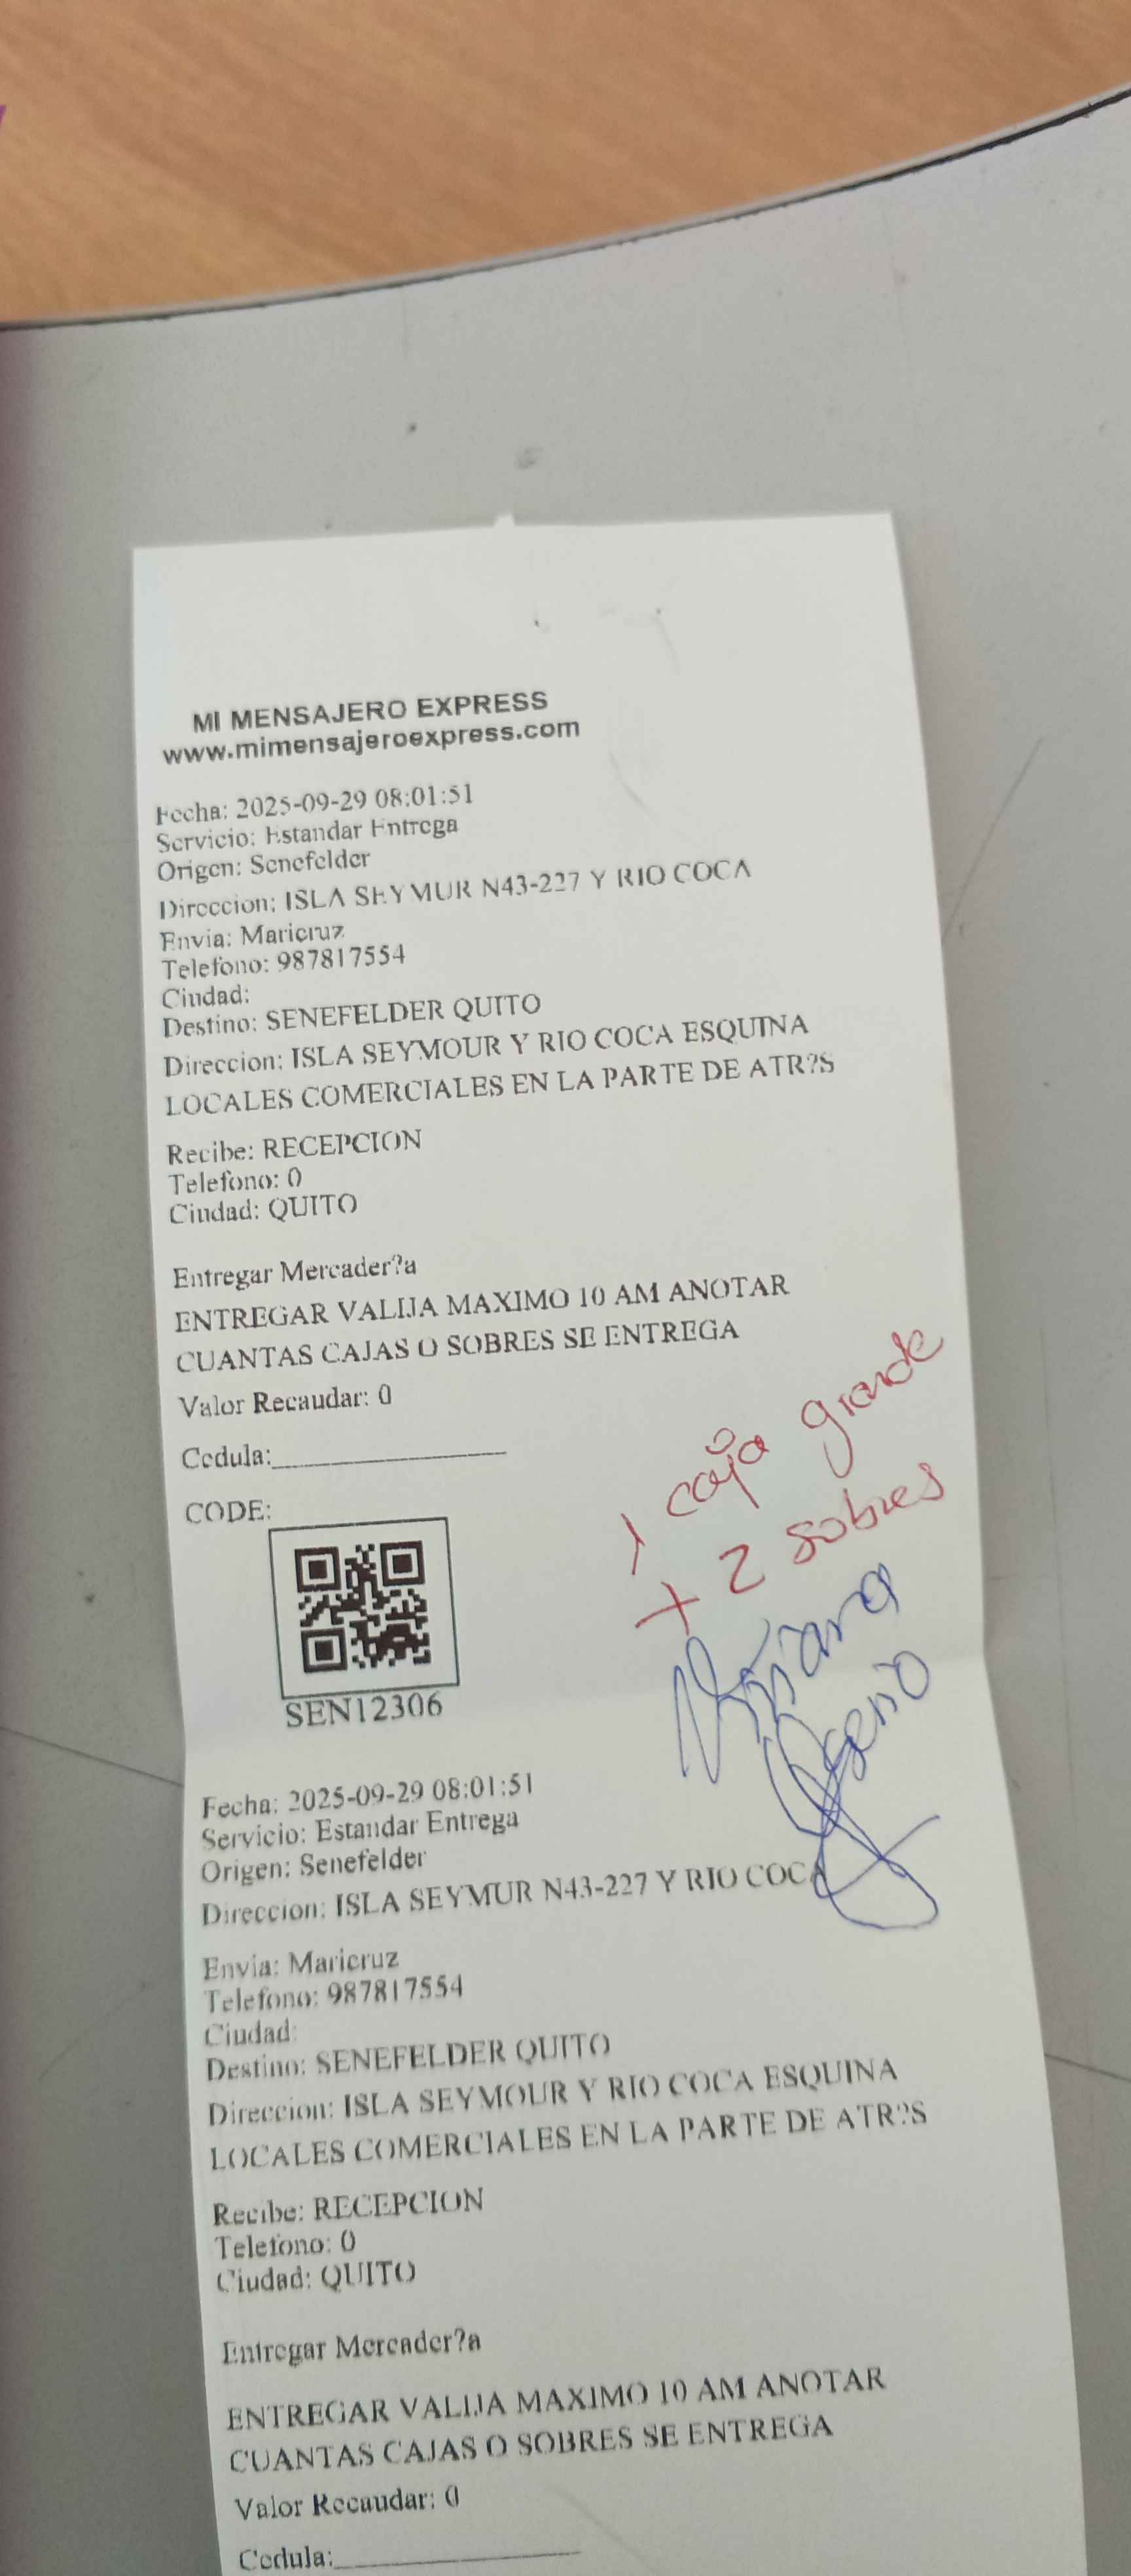 MI MENSAJERO EXPRESS
www.mimensajeroexpress.com
Fecha: 2025-09-29 08:01:51
Servicio: Estandar Entrega
Origen: Senefelder
Direccion: ISLA SEYMUR N43-227 Y RIO COCA
Envia: Maricruz
Telefono: 987817554
Ciudad:
Destino: SENEFELDER QUITO
Direccion: ISLA SEYMOUR Y RIO COCA ESQUINA
LOCALES COMERCIALES EN LA PARTE DE ATR?S
Recibe: RECEPCION
Telefono: 0
Ciudad: QUITO
Entregar Mercader?a
ENTREGAR VALIJA MAXIMO 10 AM ANOTAR
CUANTAS CAJAS O SOBRES SE ENTREGA
Valor Recaudar: 0
Cedula:
1 caja grande
+ 2 sobres
CODE:
SEN12306
Fecha: 2025-09-29 08:01:51
Servicio: Estandar Entrega
Origen: Senefelder
Direccion: ISLA SEYMUR N43-227 Y RIO COCA
Envia: Maricruz
Telefono: 987817554
Ciudad:
Destino: SENEFELDER QUITO
Direccion: ISLA SEYMOUR Y RIO COCA ESQUINA
LOCALES COMERCIALES EN LA PARTE DE ATR?S
Recibe: RECEPCION
Telefono: 0
Ciudad: QUITO
Entregar Mercader?a
ENTREGAR VALIJA MAXIMO 10 AM ANOTAR
CUANTAS CAJAS O SOBRES SE ENTREGA
Valor Recaudar: 0
Cedula: